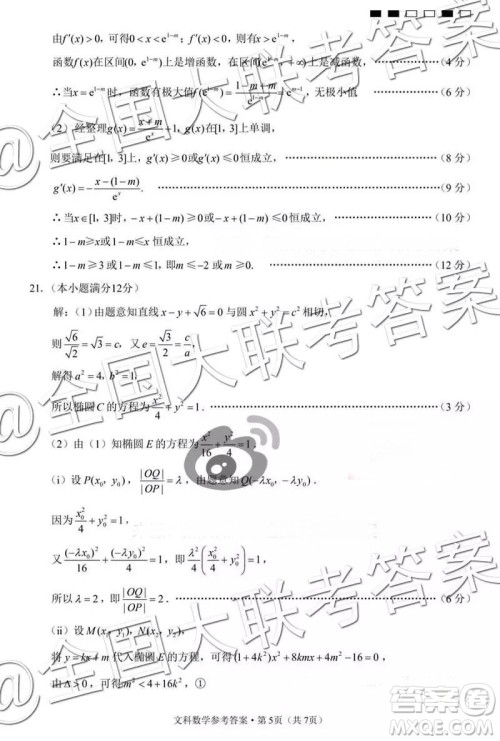 由f′(x)>0，可得0<x<e^{1−m}；f′(x)<0，则有x>e^{1−m}，
函数f(x)在区间(0，e^{1−m})上是增函数，在区间(e^{1−m}，+∞)上是减函数，（4 分）
∴当x=e^{1−m}时，函数有极大值f(e^{1−m})=1/e^{1−m}=e^{m−1}，无极小值（6 分）
（2）经整理g(x)=(x+m)/e^x+1，g(x)在[1，3]上单调，
则要满足在[1，3]上，g′(x)≥0或g′(x)≤0恒成立，（8 分）
g′(x)=−(x−(1−m))/e^x.（9 分）
∴当x∈[1，3]时，−x+(1−m)≥0或−x+(1−m)≤0恒成立，（10 分）
∴1−m≥x或1−m≤x恒成立，
∴1−m≥3或1−m≤1，即m≤−2或m≥0.（12 分）
21.（本小题满分12分）
解：（1）由题意知直线x−y+√6=0与圆x²+y²=c²相切，
则√6/√2=√3=c，又e=√3/2=c/a，
解得a²=4，b²=1，
所以椭圆C的方程为x²/4+y²=1.（3 分）
（2）由（1）知椭圆E的方程为x²/16+y²/4=1，
（i）设P(x₀，y₀)，|OQ|/|OP|=λ，由题意知Q(−λx₀，−λy₀).
因为x₀²/4+y₀²=1，
又(−λx₀)²/16+(−λy₀)²/4=1，即λ²/4(x₀²/4+y₀²)=1，
所以λ=2，即|OQ|/|OP|=2.（6 分）
（ii）设M(x₁，y₁)，N(x₂，y₂)，
将y=kx+m代入椭圆E的方程，可得(1+4k²)x²+8kmx+4m²−16=0，
由Δ>0，可得m²<4+16k²，①
文科数学参考答案・第5页（共7页）
@全国大联考答案
@全国大联考答案
@全国大联考答案
答案圈
MXQE.COM